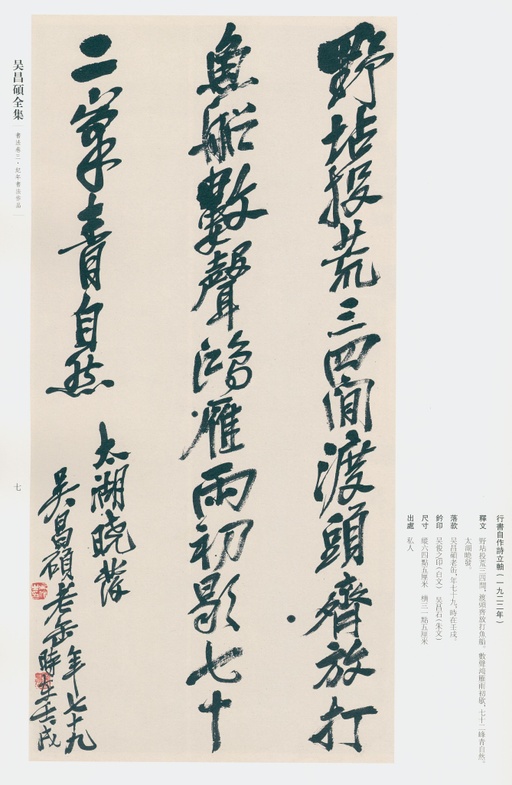 野坫投荒三四間渡頭齊放打
魚船數聲鴻雁雨初歇七十
二峯青自然
太湖曉發
吳昌碩老缶年七十九
時在壬戌
行書自作詩立軸（一九二二年）
釋文　野坫投荒三四間，渡頭齊放打魚船。數聲鴻雁雨初歇，七十二峰青自然。
太湖曉發。
落款　吳昌碩老缶，年七十九，時在壬戌。
鈐印　吳俊之印（白文）　吳昌石（朱文）
尺寸　縱六四點五厘米　橫三一點五厘米
出處　私人
吳昌碩全集
書法卷三·紀年書法作品
七